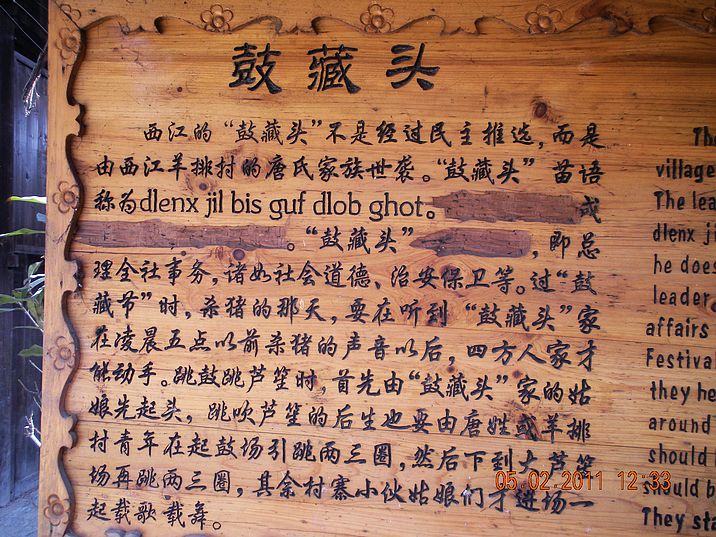 鼓藏头
西江的“鼓藏头”不是经过民主推选，而是
由西江羊排村的唐氏家族世袭。“鼓藏头”苗语
称为dlenx jil bis guf dlob ghot。 或
。“鼓藏头” ，即总
理全社事务，诸如社会道德、治安保卫等。过“鼓
藏节”时，杀猪的那天，要在听到“鼓藏头”家
在凌晨五点以前杀猪的声音以后，四方人家才
能动手。跳鼓跳芦笙时，首先由“鼓藏头”家的姑
娘先起头，跳吹芦笙的后生也要由唐姓或羊排
村青年在起鼓场引跳两三圈，然后下到大芦笙
场再跳两三圈，其余村寨小伙姑娘们才进场一
起载歌载舞。
Th
village
The lea
dlenx ji
he does
leader,
affairs
Festiva
they he
around
should
should b
They sta
05.02.2011 12:33